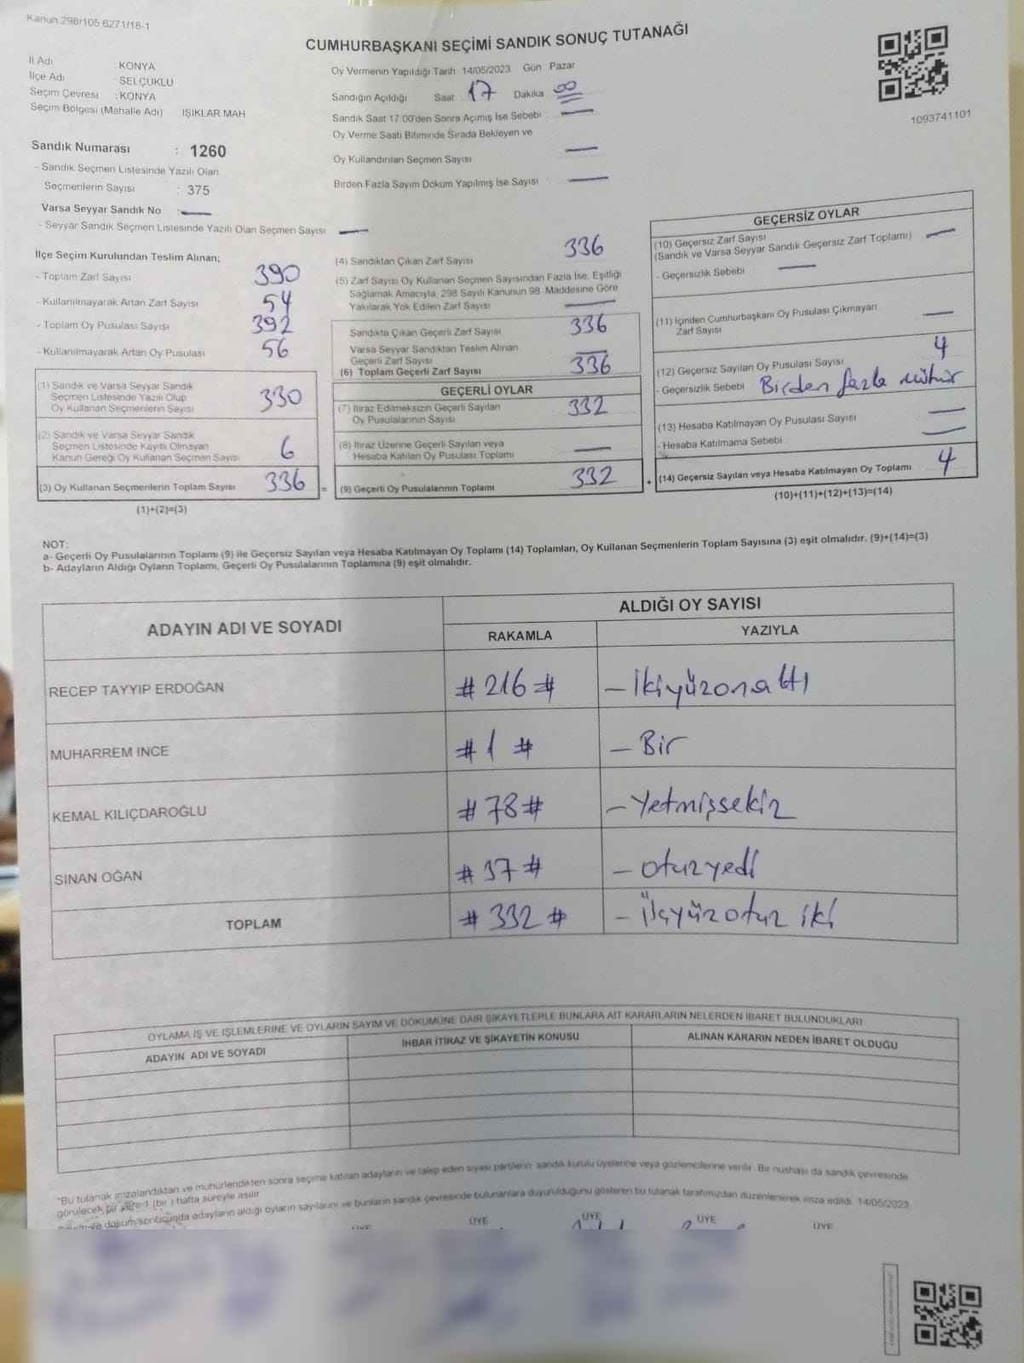 Kanun 298/105 6271/18-1
CUMHURBAŞKANI SEÇİMİ SANDIK SONUÇ TUTANAĞI
İl Adı : KONYA
İlçe Adı : SELÇUKLU
Seçim Çevresi : KONYA
Seçim Bölgesi (Mahalle Adı) IŞIKLAR MAH
Sandık Numarası : 1260
- Sandık Seçmen Listesinde Yazılı Olan
Seçmenlerin Sayısı : 375
Varsa Seyyar Sandık No : —
- Seyyar Sandık Seçmen Listesinde Yazılı Olan Seçmen Sayısı —
Oy Vermenin Yapıldığı Tarih 14/05/2023 Gün Pazar
Sandığın Açıldığı Saat 17 Dakika 00
Sandık Saat 17:00'den Sonra Açımış İse Sebebi : —
Oy Verme Saati Bitiminde Sırada Bekleyen ve
Oy Kullandırılan Seçmen Sayısı —
Birden Fazla Sayım Döküm Yapılmış İse Sayısı : —
1093741101
İlçe Seçim Kurulundan Teslim Alınan;
- Toplam Zarf Sayısı 390
- Kullanılmayarak Artan Zarf Sayısı 54
- Toplam Oy Pusulası Sayısı 392
- Kullanılmayarak Artan Oy Pusulası 56
(1) Sandık ve Varsa Seyyar Sandık
Seçmen Listesinde Yazılı Olup
Oy Kullanan Seçmenlerin Sayısı 330
(2) Sandık ve Varsa Seyyar Sandık
Seçmen Listesinde Kayıtlı Olmayan
Kanun Gereği Oy Kullanan Seçmen Sayısı 6
(3) Oy Kullanan Seçmenlerin Toplam Sayısı 336 =
(1)+(2)=(3)
(4) Sandıktan Çıkan Zarf Sayısı 336
(5) Zarf Sayısı Oy Kullanan Seçmen Sayısından Fazla İse, Eşitliği
Sağlamak Amacıyla, 298 Sayılı Kanunun 98. Maddesine Göre
Yakılarak Yok Edilen Zarf Sayısı —
Sandıkta Çıkan Geçerli Zarf Sayısı 336
Varsa Seyyar Sandıktan Teslim Alınan
Geçerli Zarf Sayısı —
(6) Toplam Geçerli Zarf Sayısı 336
GEÇERLİ OYLAR
(7) İtiraz Edilmeksizin Geçerli Sayılan
Oy Pusulalarının Sayısı 332
(8) İtiraz Üzerine Geçerli Sayılan veya
Hesaba Katılan Oy Pusulası Toplamı —
(9) Geçerli Oy Pusulalarının Toplamı 332 +
GEÇERSİZ OYLAR
(10) Geçersiz Zarf Sayısı
(Sandık ve Varsa Seyyar Sandık Geçersiz Zarf Toplamı) —
- Geçersizlik Sebebi —
(11) İçinden Cumhurbaşkanı Oy Pusulası Çıkmayan
Zarf Sayısı —
(12) Geçersiz Sayılan Oy Pusulası Sayısı 4
- Geçersizlik Sebebi Birden fazla mühür
(13) Hesaba Katılmayan Oy Pusulası Sayısı —
- Hesaba Katılmama Sebebi —
(14) Geçersiz Sayılan veya Hesaba Katılmayan Oy Toplamı 4
(10)+(11)+(12)+(13)=(14)
NOT:
a- Geçerli Oy Pusulalarının Toplamı (9) ile Geçersiz Sayılan veya Hesaba Katılmayan Oy Toplamı (14) Toplamları, Oy Kullanan Seçmenlerin Toplam Sayısına (3) eşit olmalıdır. (9)+(14)=(3)
b- Adayların Aldığı Oyların Toplamı, Geçerli Oy Pusulalarının Toplamına (9) eşit olmalıdır.
ADAYIN ADI VE SOYADI
ALDIĞI OY SAYISI
RAKAMLA YAZIYLA
RECEP TAYYIP ERDOĞAN #216# – İkiyüzonaltı
MUHARREM INCE #1# – Bir
KEMAL KILIÇDAROĞLU #78# – Yetmişsekiz
SINAN OĞAN #37# – otuzyedi
TOPLAM #332# – Üçyüzotuz iki
OYLAMA İŞ VE İŞLEMLERİNE VE OYLARIN SAYIM VE DÖKÜMÜNE DAİR ŞİKAYETLERLE BUNLARA AİT KARARLARIN NELERDEN İBARET BULUNDUKLARI
ADAYIN ADI VE SOYADI İHBAR İTİRAZ VE ŞİKAYETİN KONUSU ALINAN KARARIN NEDEN İBARET OLDUĞU
"Bu tutanak imzalandıktan ve mühürlendikten sonra seçime katılan adayların ve talep eden siyasi partilerin sandık kurulu üyelerine veya gözlemcilerine verilir. Bir nüshası da sandık çevresinde
görülecek bir yere 1 (bir) hafta süreyle asılır
döküm sonucunda adayların aldığı oyların sayılarını ve bunların sandık çevresinde bulunanlara duyurulduğunu gösteren bu tutanak tarafımızdan düzenlenerek imza edildi. 14/05/2023
ÜYE ÜYE ÜYE ÜYE ÜYE